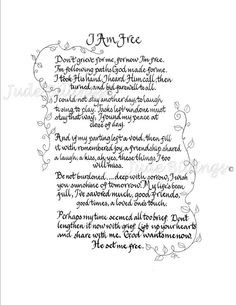 I Am Free
Don't grieve for me, for now I'm free.
I'm following paths God made for me.
I took His hand, I heard Him call, then
turned, and bid farewell to all.
I could not stay another day to laugh,
to sing to play. Tasks left undone must
stay that way, I found my peace at
close of day.
And if my parting left a void, then fill
it with remembered joy, a friendship shared
a laugh, a kiss, oh yes, these things I too
will miss.
Be not burdened....deep with sorrow, I wish
you sunshine of tomorrow. My life's been
full, I've savored much, good friends,
good times, a loved one's touch.
Perhaps my time seemed all too brief. Don't
lengthen it now with grief. Lift up your hearts
and share with me. God wants me now.
He set me free.